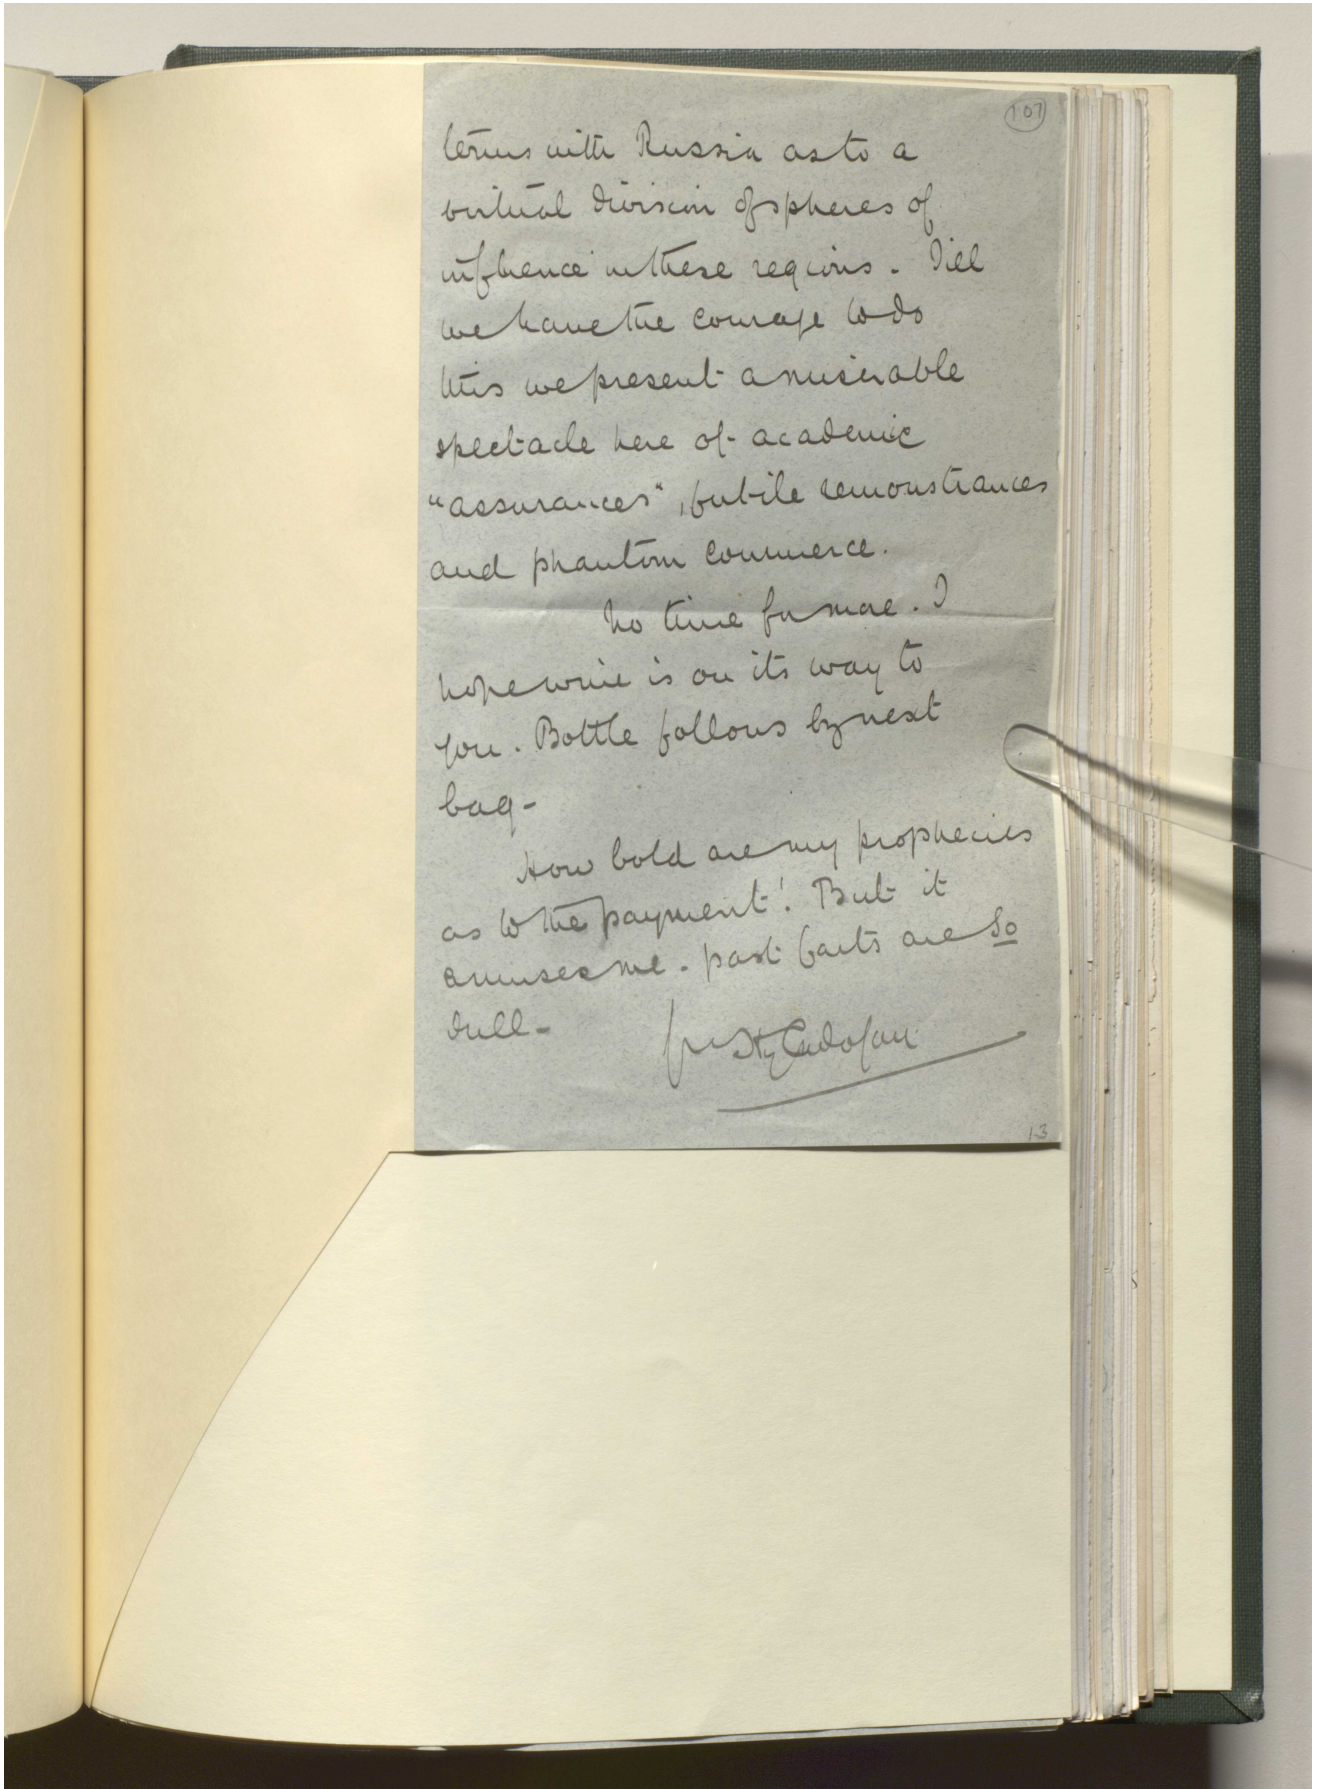 107
terms with Russia as to a
virtual division of spheres of
influence in these regions. Till
we have the courage to do
this we present a miserable
spectacle here of academic
"assurances", futile remonstrances
and phantom commerce.
No time for more. I
hope wine is on its way to
you. Bottle follows by next
bag-
How bold are my prophecies
as to the payment! But it
amuses me. past facts are so
dull-
Hy Cadogan
13